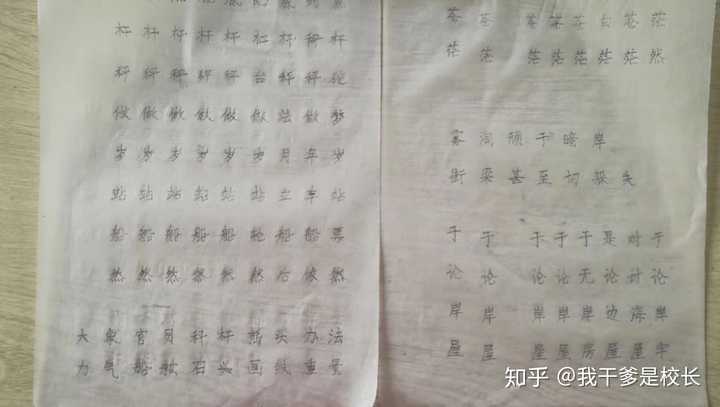 杆 杆 杆 杆 杆 杆 杆 杆
秤 秤 秤 秤 秤 台 秤 秤
做 做 做 做 做 做 法 做 梦
岁 岁 岁 岁 岁 岁 月 年 岁
站 站 站 站 站 站 立 车 站
船 船 船 船 船 轮 船 船 票
然 然 然 然 然 然 后 依 然
大 象 官 员 秤 杆 前 头 办 法
力 气 船 舷 石 头 画 线 重 量
苍 苍 苍 苍 苍 苍 茫
茫 茫 茫 茫 茫 茫 茫 然
雾 淘 预 于 暗 岸
街 梁 甚 至 切 躲 失
于 于 于 于 于 是 对 于
论 论 论 论 无 论 讨 论
岸 岸 岸 岸 岸 边 海 岸
屋 屋 屋 屋 房 屋 屋 牢
知乎 @我干爹是校长